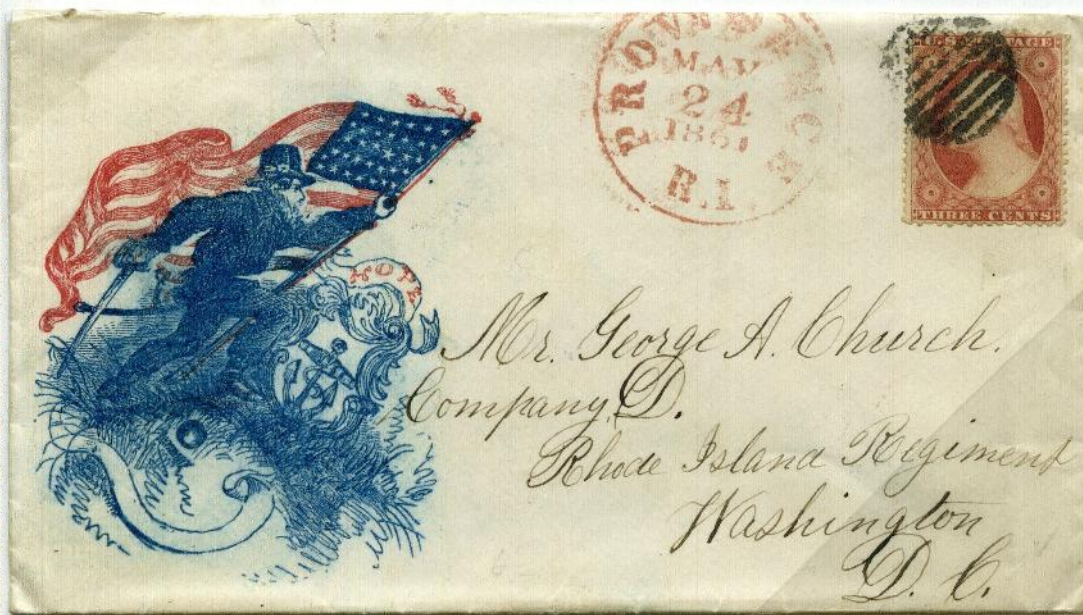 PROVIDENCE
MAY
24
1861
R.I.
U.S. POSTAGE
THREE CENTS
HOPE
Mr. George A. Church.
Company, D.
Rhode Island Regiment
Washington
D. C.